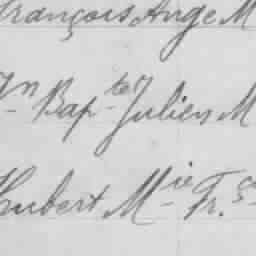 François Ange M
Jn Bapte Julien M
Hubert Mie Fr. çs